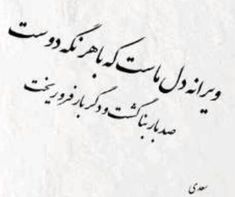 ویرانه دل ماست که با هر نگه دوست
صد بار بنا گشت و دگر بار فرو ریخت
سعدی